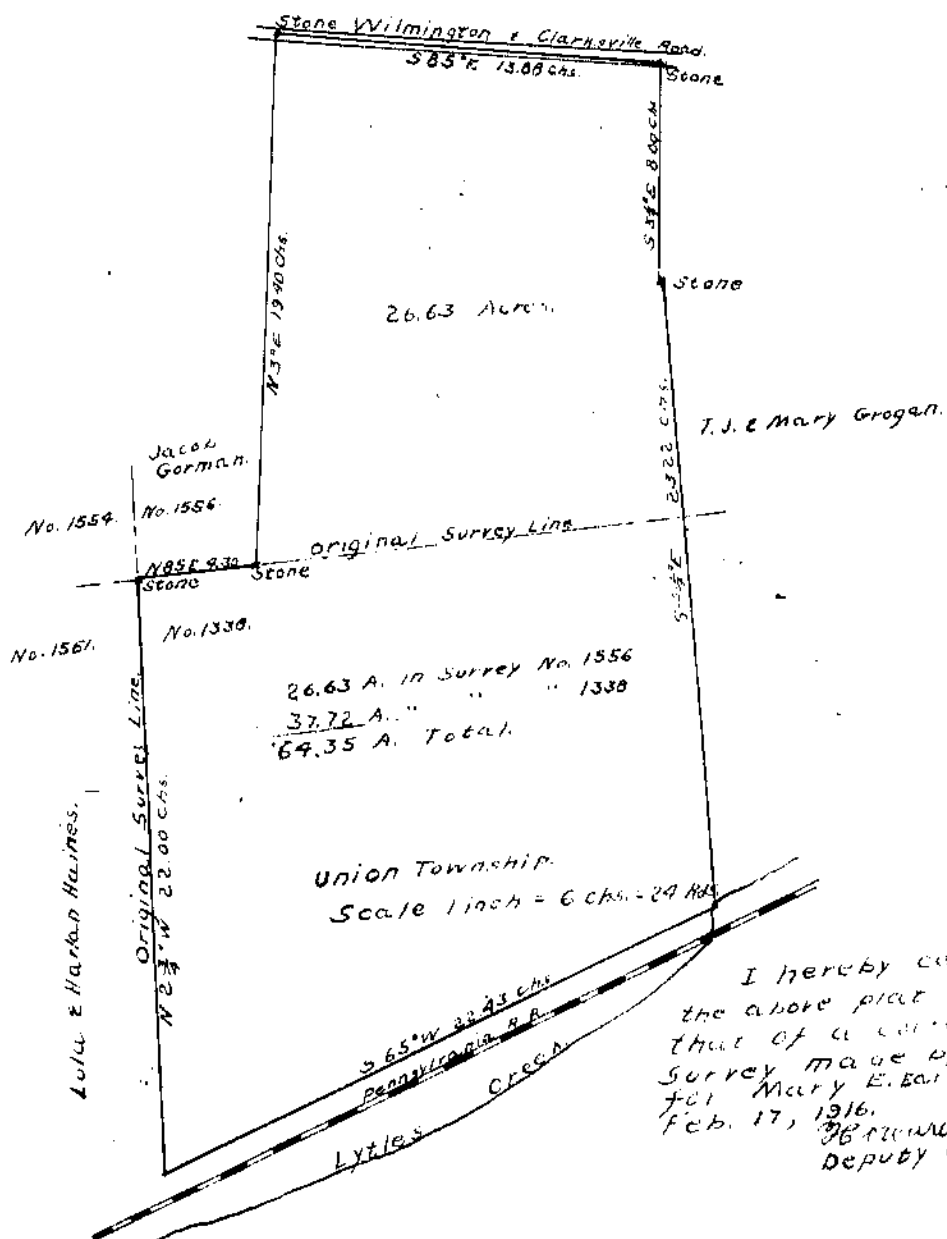 Stone Wilmington & Clarksville Road.
S 85°E 13.88 chs.
Stone
S 5¼°E 8.00 ch
Stone
N 3°E 19.40 chs.
26.63 Acres.
T.J. & Mary Grogan.
23.22 chs.
Jacob
Gorman.
No. 1554. No. 1556.
Original Survey Line
N85E 4.30
Stone Stone
No. 1561. No. 1338.
26.63 A. in Survey No. 1556
37.72 A. " " " 1338
64.35 A. Total.
Original Survey Line
N 2¾°W 22.00 chs.
Lulu & Harlan Haines.
Union Township.
Scale 1 inch = 6 chs. = 24 Rds
S 65°W 22.43 chs
Pennsylvania R R
Lytles Creek.
I hereby
the above plat
that of a
Survey made
for Mary E.
Feb. 17, 1916.
Deputy